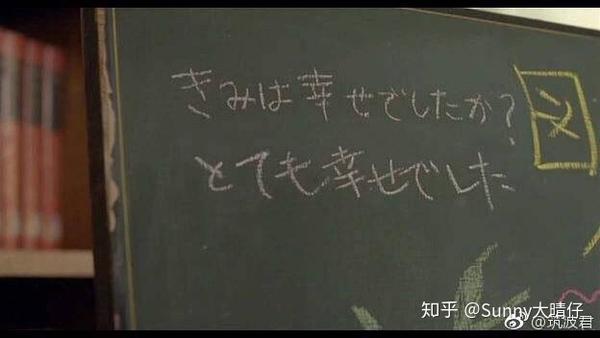 きみは幸せでしたか?
とても幸せでした
知乎 @Sunny大晴仔
@筑波君